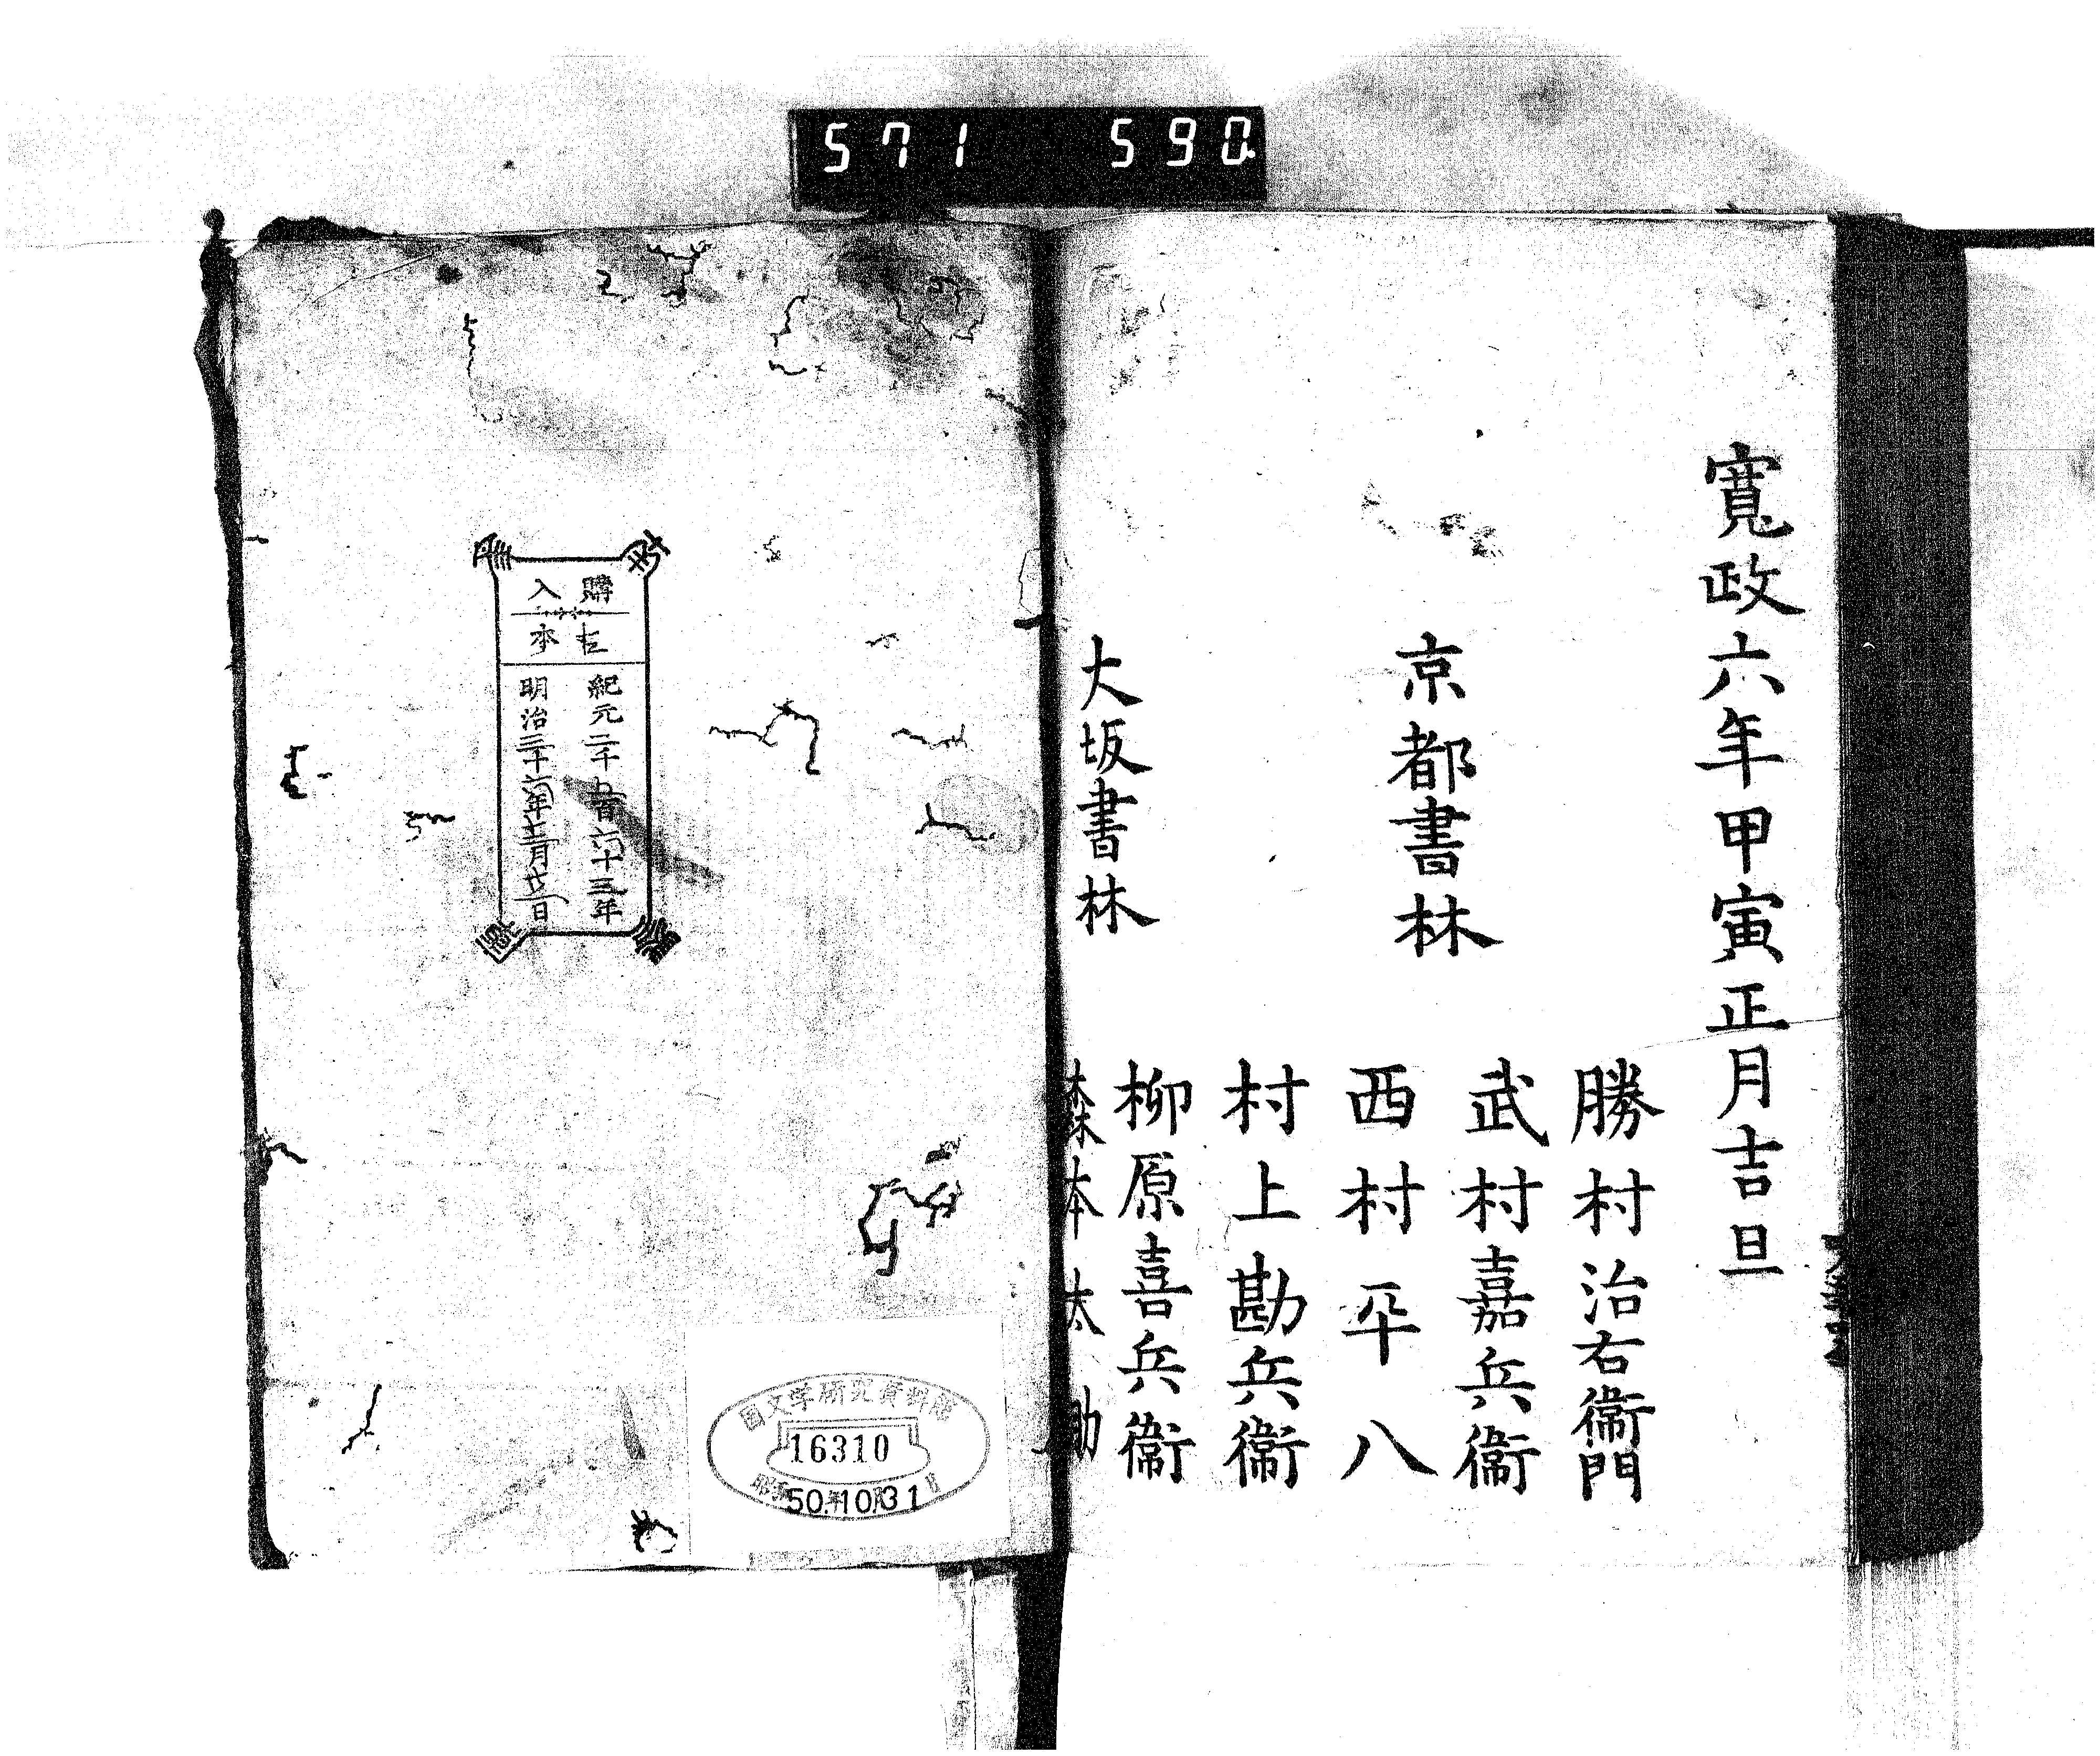 571 590
寛政六年甲寅正月吉旦
京都書林
勝村治右衛門
武村嘉兵衛
西村平八
村上勘兵衛
大坂書林
柳原喜兵衛
森本太助
購入
紀元二千五百六十三年
明治三十六年十二月廿二日
國文学研究資料館
16310
50.10.31